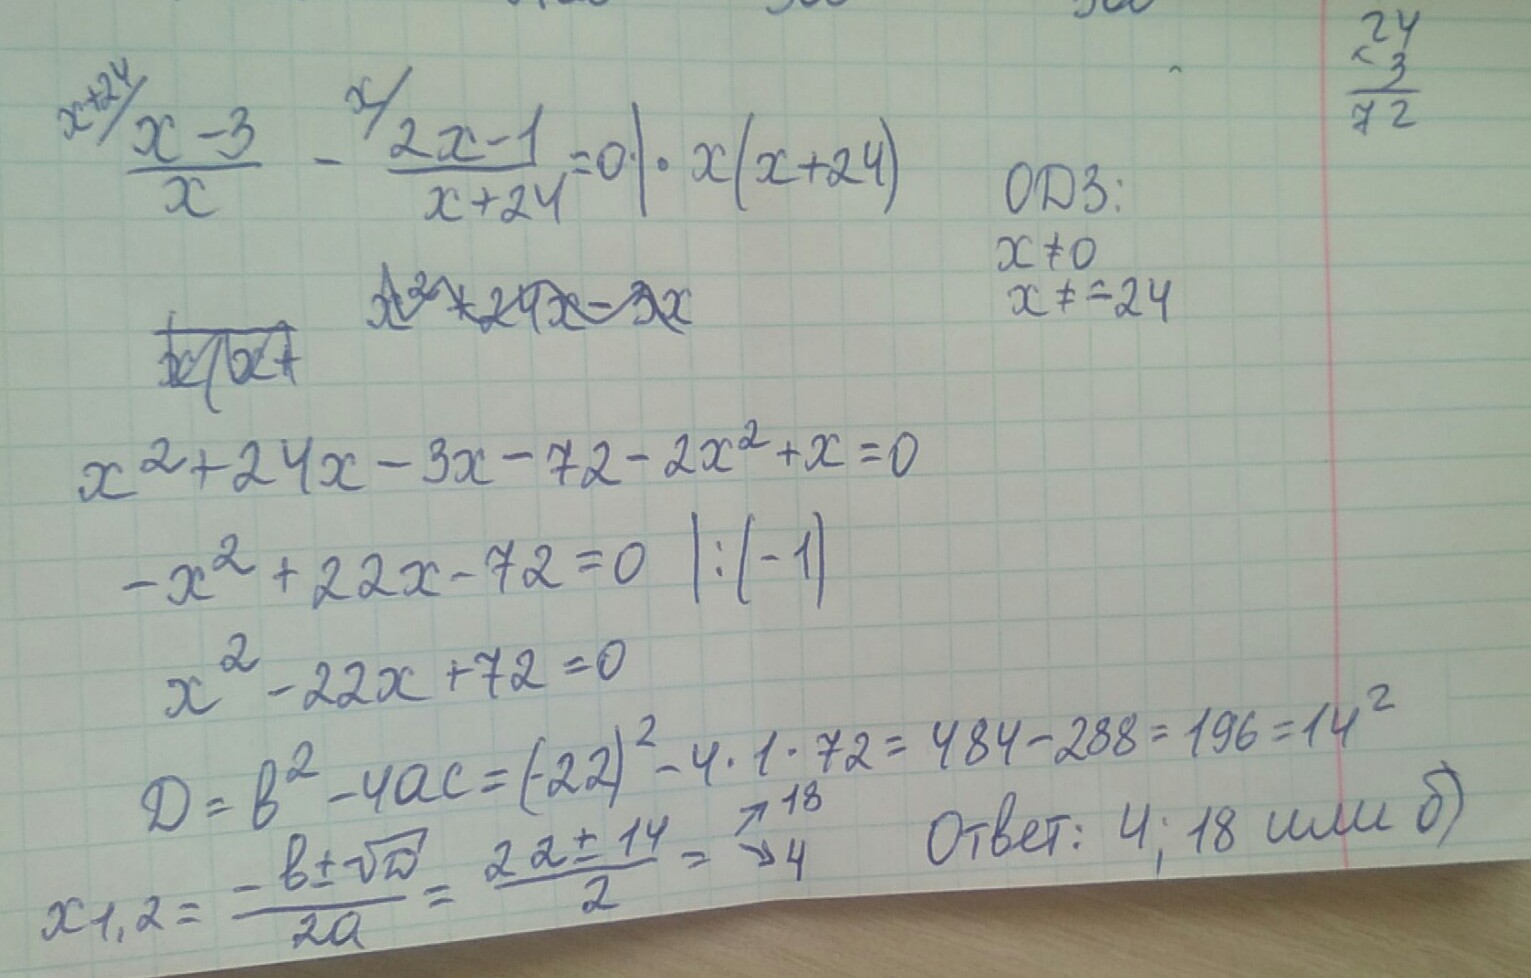 24
× 3
72
x+24/ (x-3)/x - x/ (2x-1)/(x+24) =0 | · x(x+24)
ОДЗ:
x≠0
x≠-24
x²+24x-3x-72-2x²+x=0
-x²+22x-72=0 |:(-1)
x²-22x+72=0
D=b²-4ac=(-22)²-4·1·72=484-288=196=14²
x1,2 = (-b±√D)/2a = (22±14)/2 = ↗18 ↘4
Ответ: 4; 18 или б)